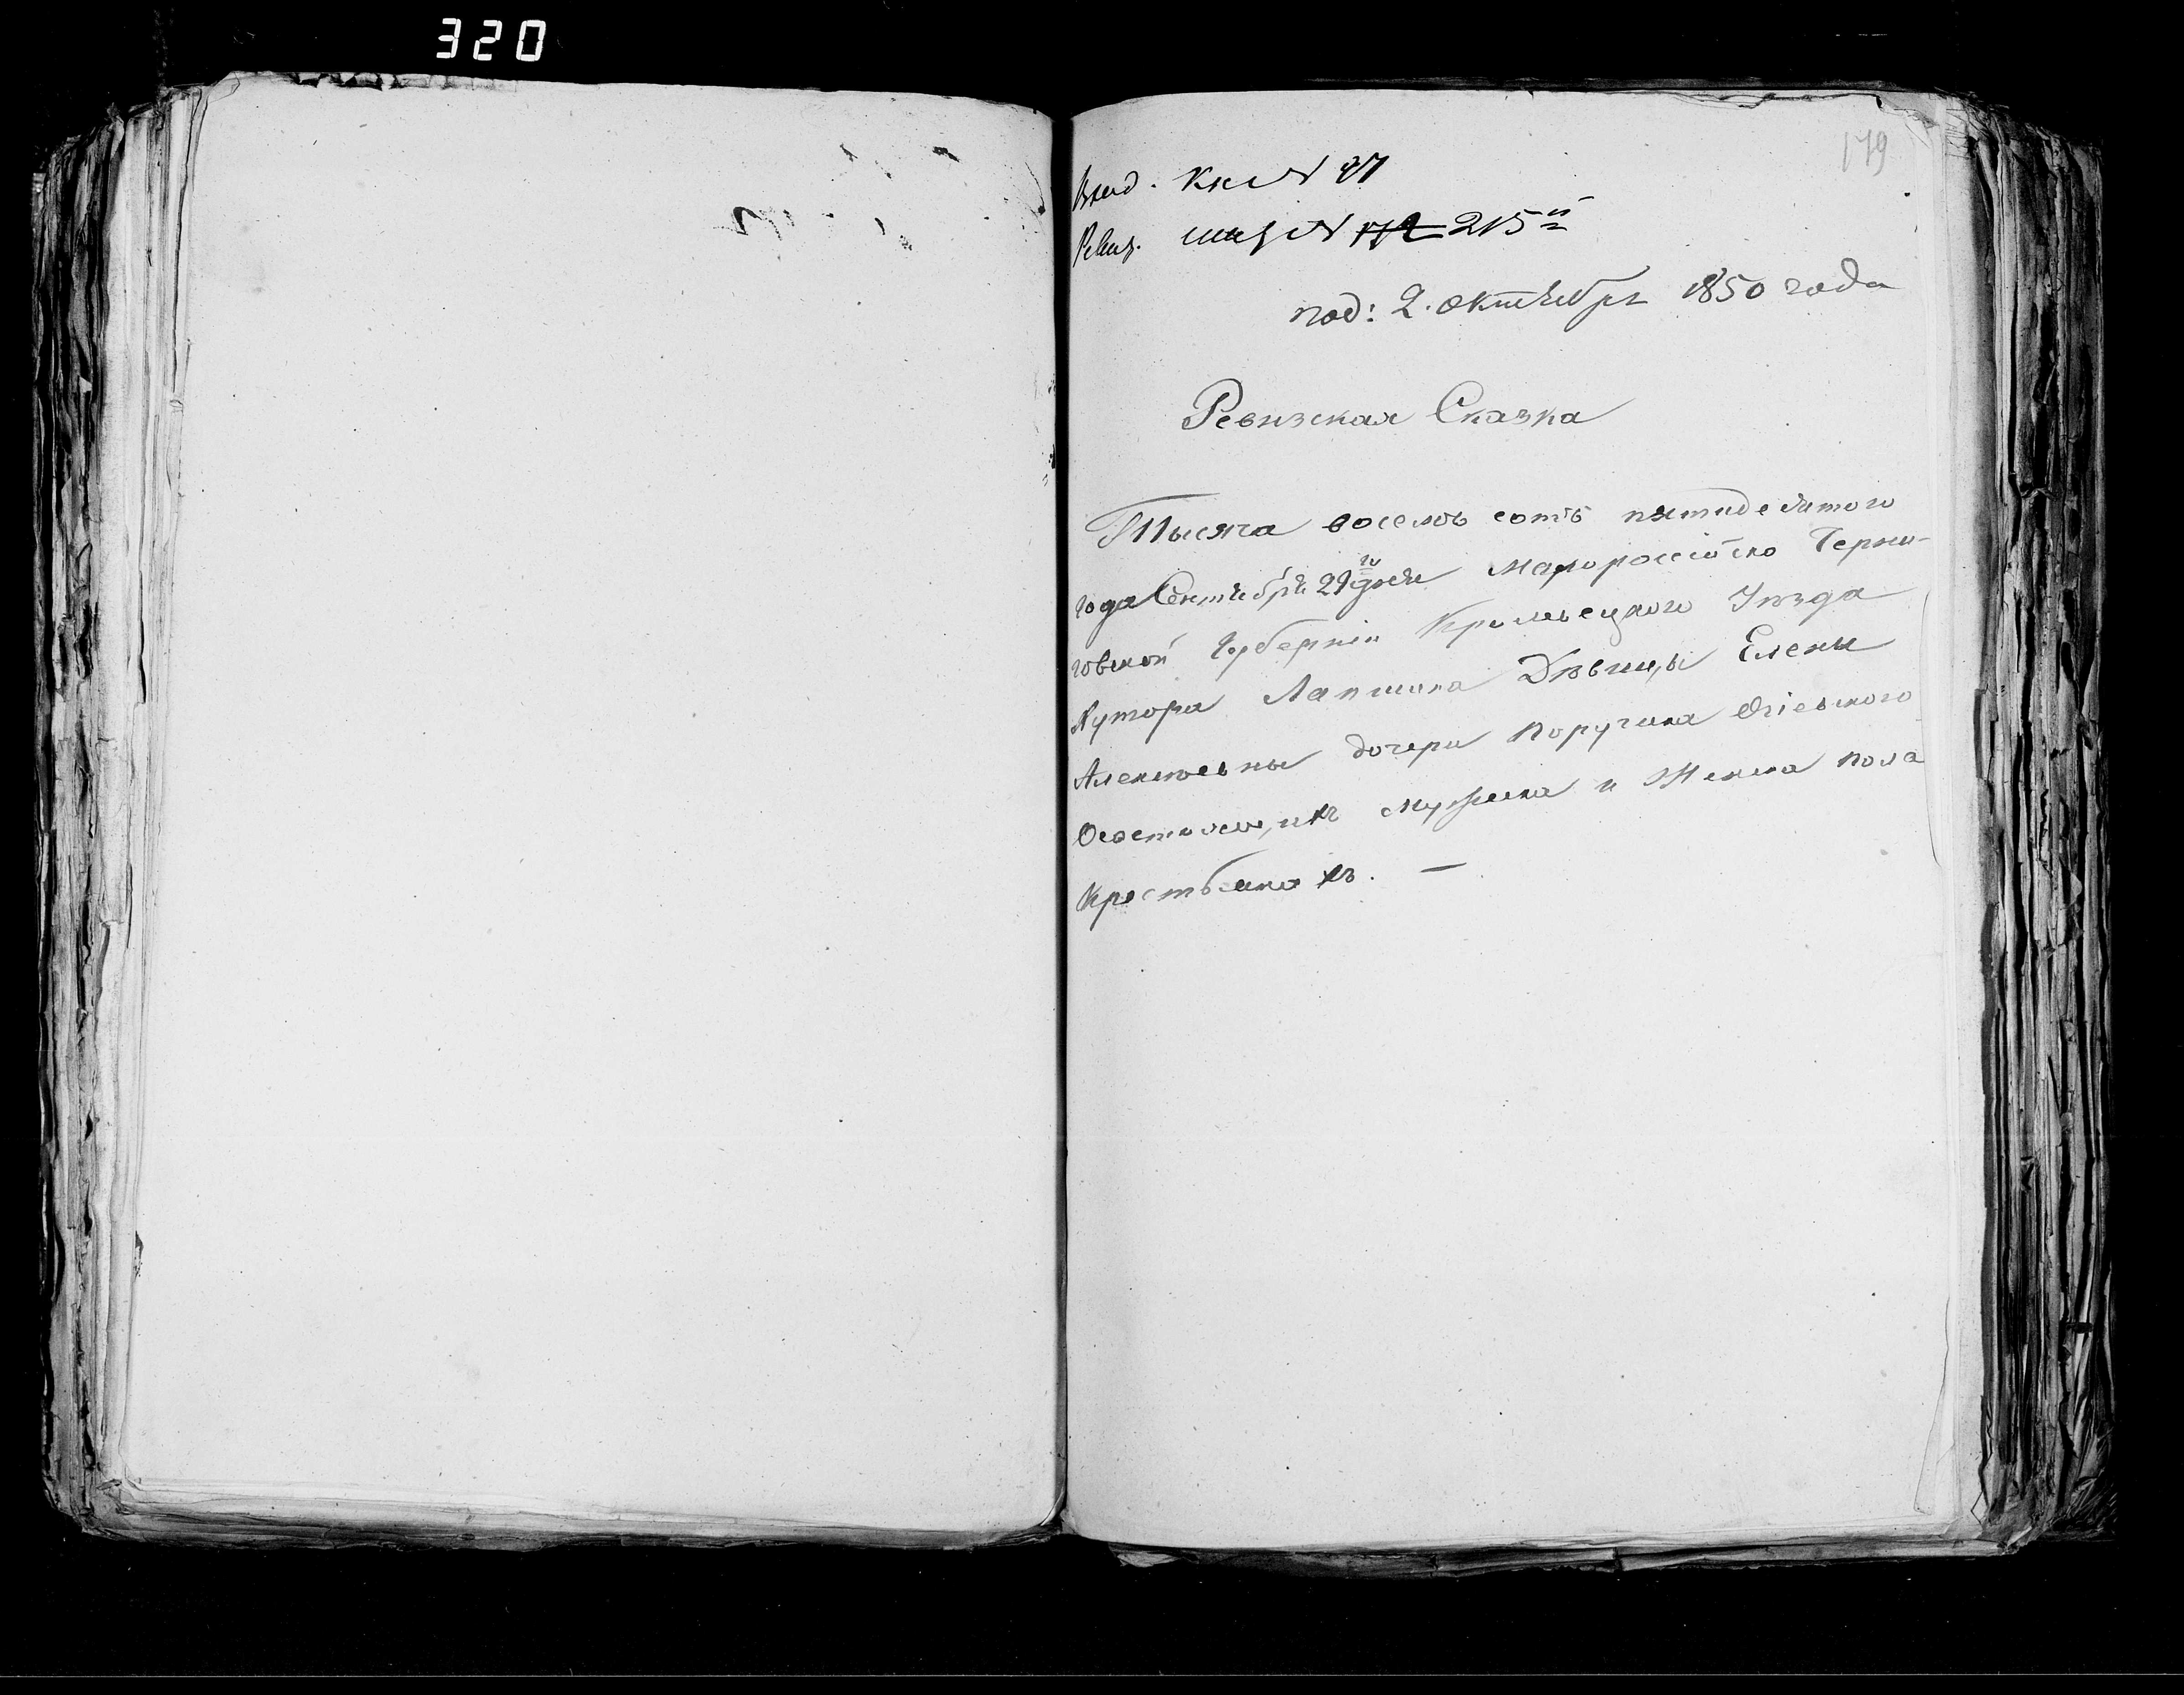 320
179
Вход. Кн № 37
Ревиз. Сказ № 172 215й
под: 2. октября 1850 года
Ревизская Сказка
Тысяча восемь сотъ пятидесятого
года Сентября 29го дня Малороссійско Черни-
говской Губерніи Кролевецкого Уезда
Хутора Лапшина Девицы Елены
Алексеевны дочери Поручика Огіевского
Осостоящихъ мужеска и Женска пола
Крестьянахъ. —